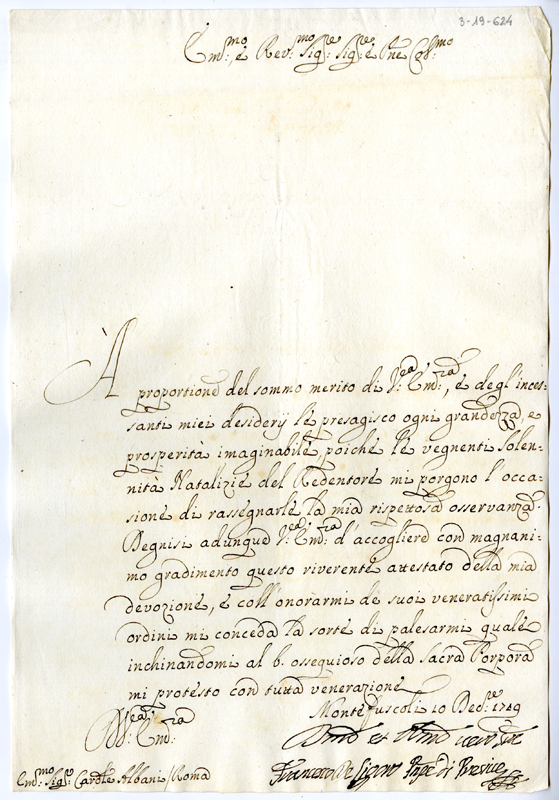 3-19-624
Em:mo, e Rev:mo Sig:re Sig:re e Pne Col:mo
À proportione del sommo merito di V:ra Em:za, e degl' inces=
santi miei desiderij le presagisco ogni grandezza, e
prosperità imaginabile, poiche le vegnenti solen=
nità Natalizie del Redentore mi porgono l'occa=
sione di rassegnarle la mia rispettosa osservanza.
Degnisi adunque V:ra Em:za d'accogliere con magnani=
mo gradimento questo riverente attestato della mia
devozione, e coll'onorarmi de suoi veneratissimi
ordini mi conceda la sorte di palesarmi quale
inchinandomi al b. ossequioso della Sacra Porpora
mi protesto con tutta venerazione
Montefuscoli 10 Dec:re 1749
Di V:ra Em:za
Em:mo Sig:re Card:le Albani / Roma